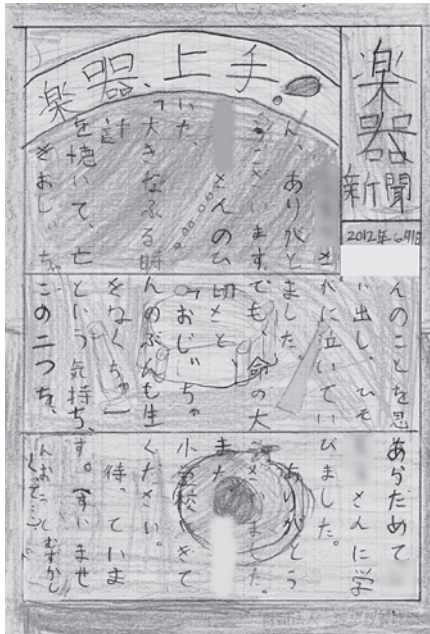 楽器新聞
2012年6月1日
楽器、上手!
さ
ん、ありがと
うございます。
さんのひ
いた、
「大きなふる時
計」
を焼いて、亡
きおじいちゃ
んのことを思
い出し、ひそ
かに泣いてい
ました。
でも、命の大
切さと、
「おじいちゃ
んのぶんも生
きなくちゃ」
という気持ち、
この二つを、
あらためて
さんに学
びました。
ありがとう
ございました。
また、
小学校にきて
ください。
待っていま
す。(すいませ